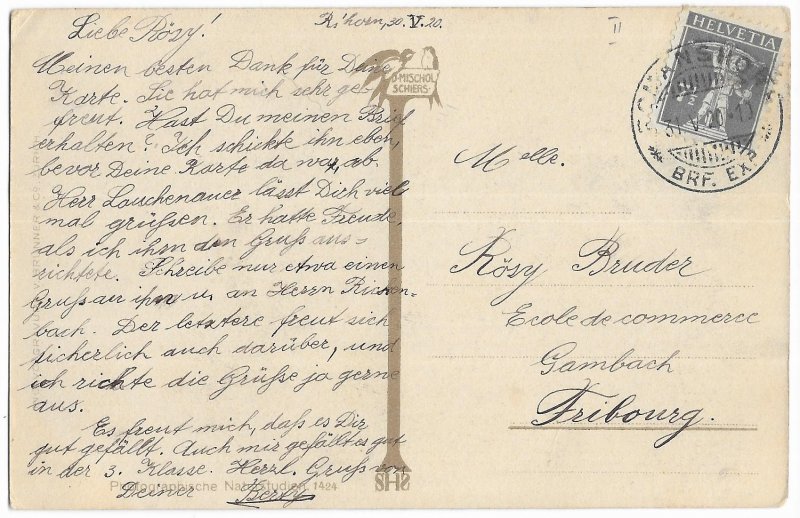 Liebe Rösy!
R'horn, 30. V. 20.
II
Meinen besten Dank für Deine
Karte. Sie hat mich sehr ge-
freut. Hast Du meinen Brief
erhalten? Ich schickte ihn eben,
bevor Deine Karte da war, ab.
Herr Lauchenauer lässt Dich viel
mal grüßen. Er hatte Freude,
als ich ihm den Gruß aus-
richtete. Schreibe nur etwa einen
Gruß an ihn u. an Herrn Ricken-
bach. Der letztere freut sich
sicherlich auch darüber, und
ich richte die Grüße ja gerne
aus.
Es freut mich, daß es Dir
gut gefällt. Auch mir gefällt es gut
in der 3. Klasse. Herzl. Gruß von
Deiner Berty
D. MISCHOL
SCHIERS
Photographische Natur-Studien, 1424
SHS
HELVETIA
ROMANSHORN
31.V.20
BRF. EXP.
Melle.
Rösy Bruder
Ecole de commerce
Gambach
Fribourg.